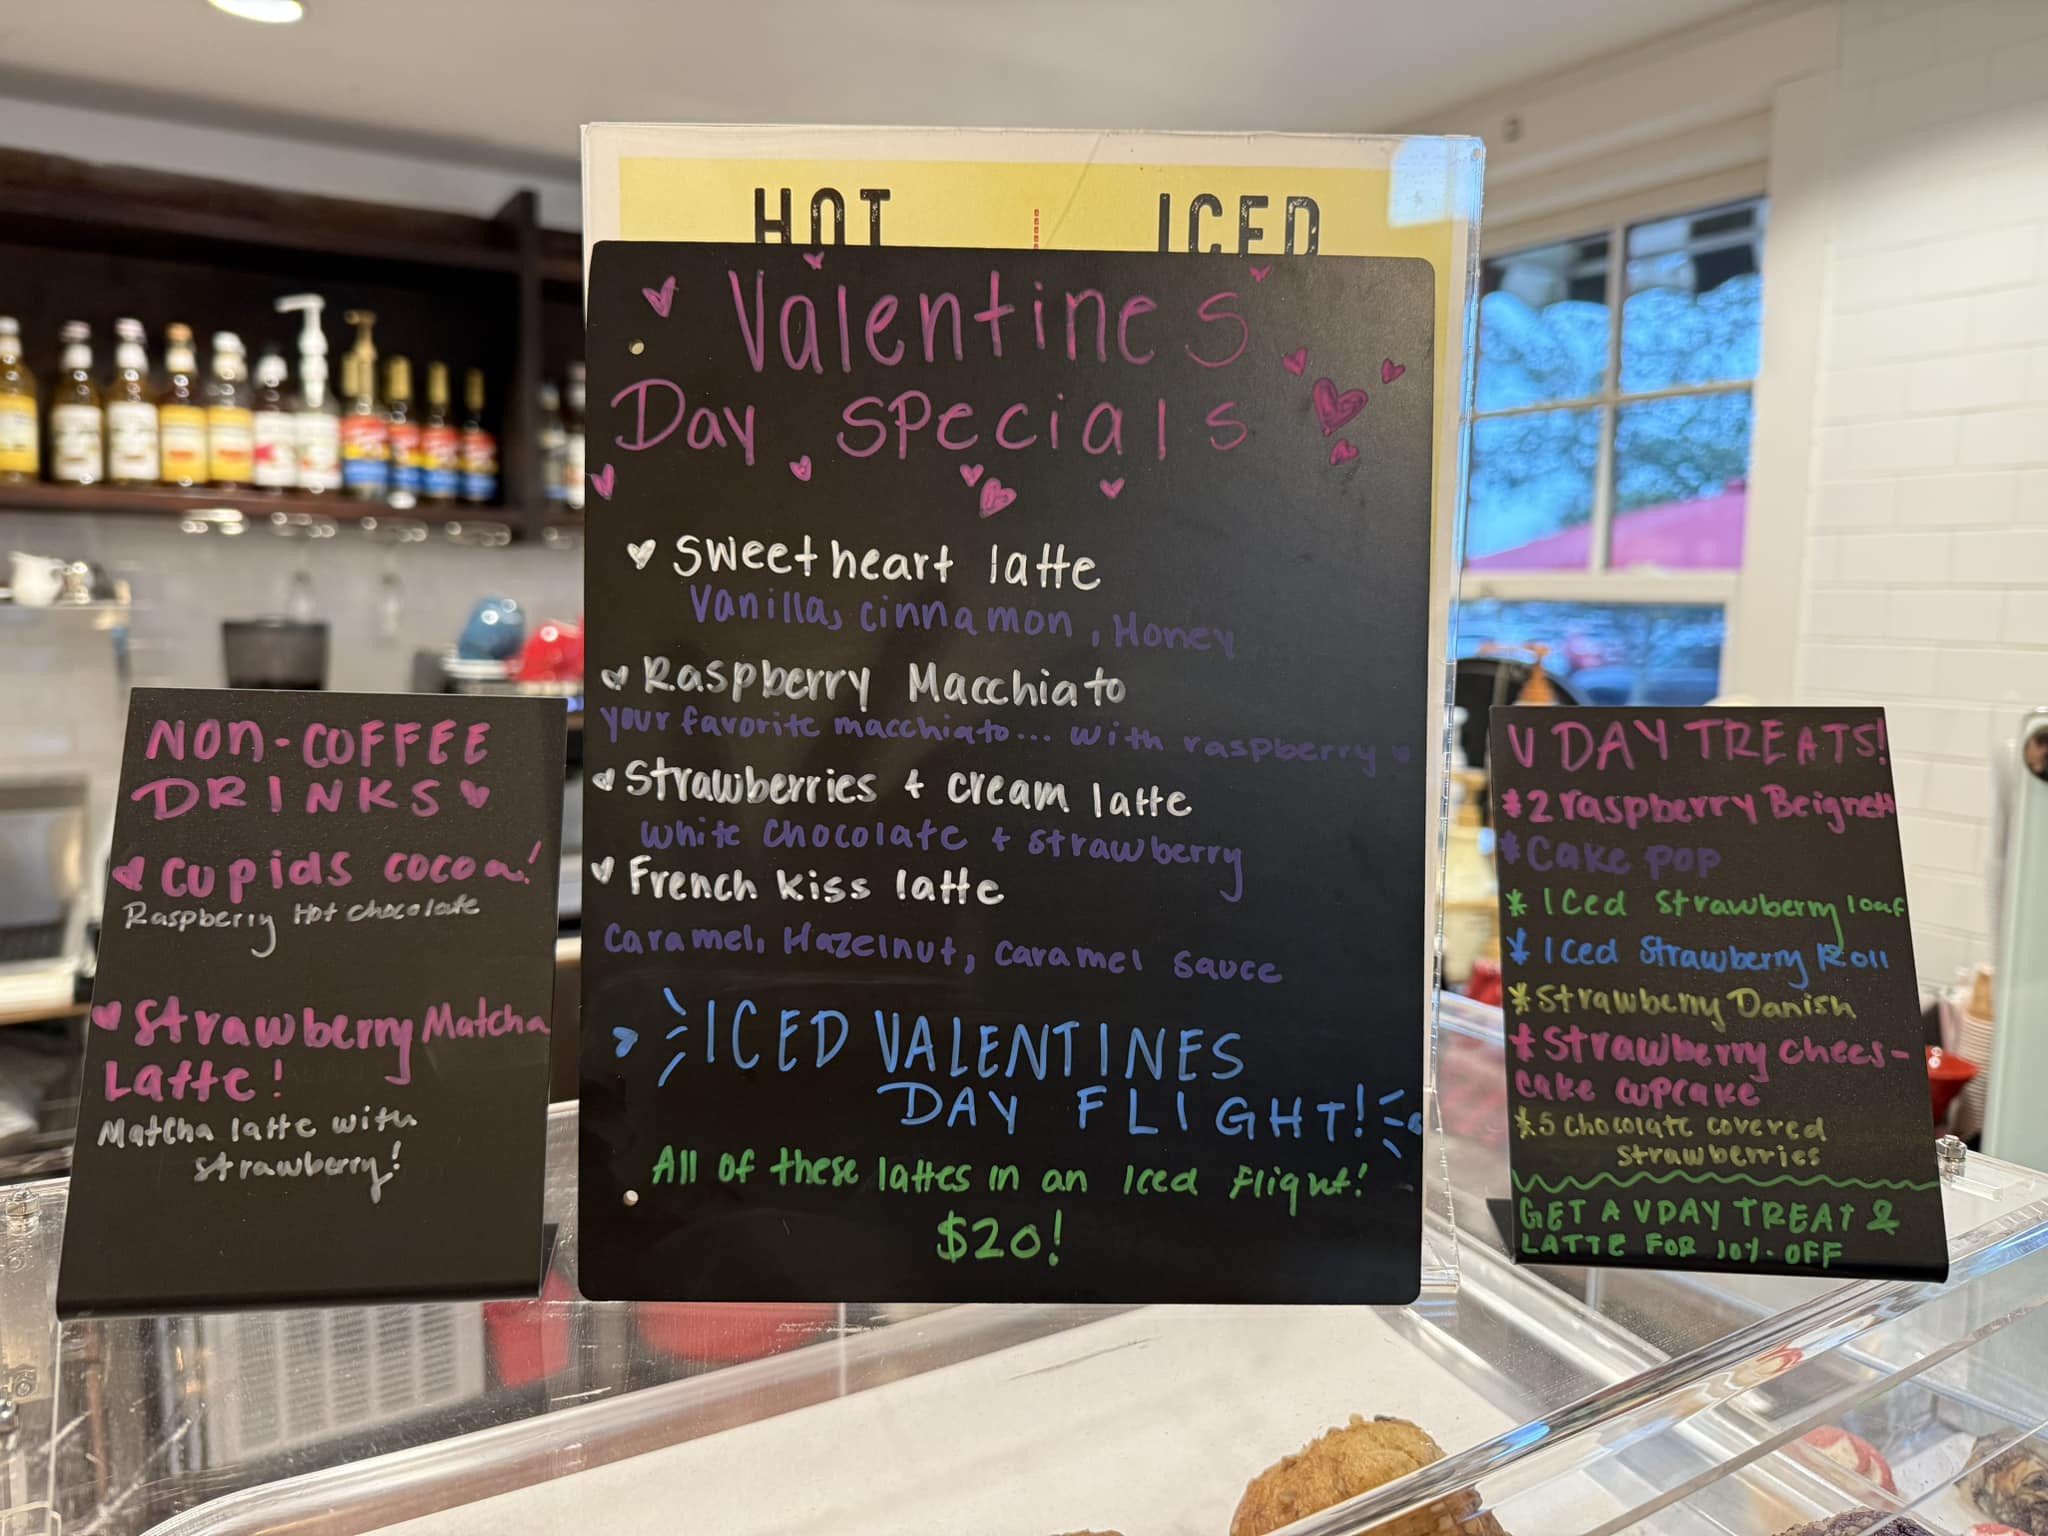 HOT
ICED
Valentines
Day specials
Sweetheart latte
Vanilla, cinnamon, Honey
Raspberry Macchiato
your favorite macchiato... with raspberry
Strawberries + cream latte
white chocolate + strawberry
French kiss latte
caramel, Hazelnut, caramel sauce
ICED VALENTINES
DAY FLIGHT!
All of these lattes in an Iced flight!
$20!
NON-COFFEE
DRINKS
cupids cocoa!
Raspberry Hot chocolate
Strawberry Matcha
Latte!
Matcha latte with
strawberry!
V DAY TREATS!
*2 raspberry Beignett
*Cake pop
* Iced Strawberry loaf
* Iced Strawberry Roll
*Strawberry Danish
*Strawberry chees-
cake cupcake
*5 chocolate covered
strawberries
GET A VDAY TREAT &
LATTE FOR 10% OFF